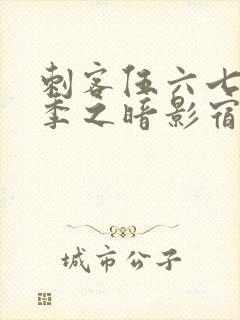 刺客伍六七
季之暗影宿
城市公子